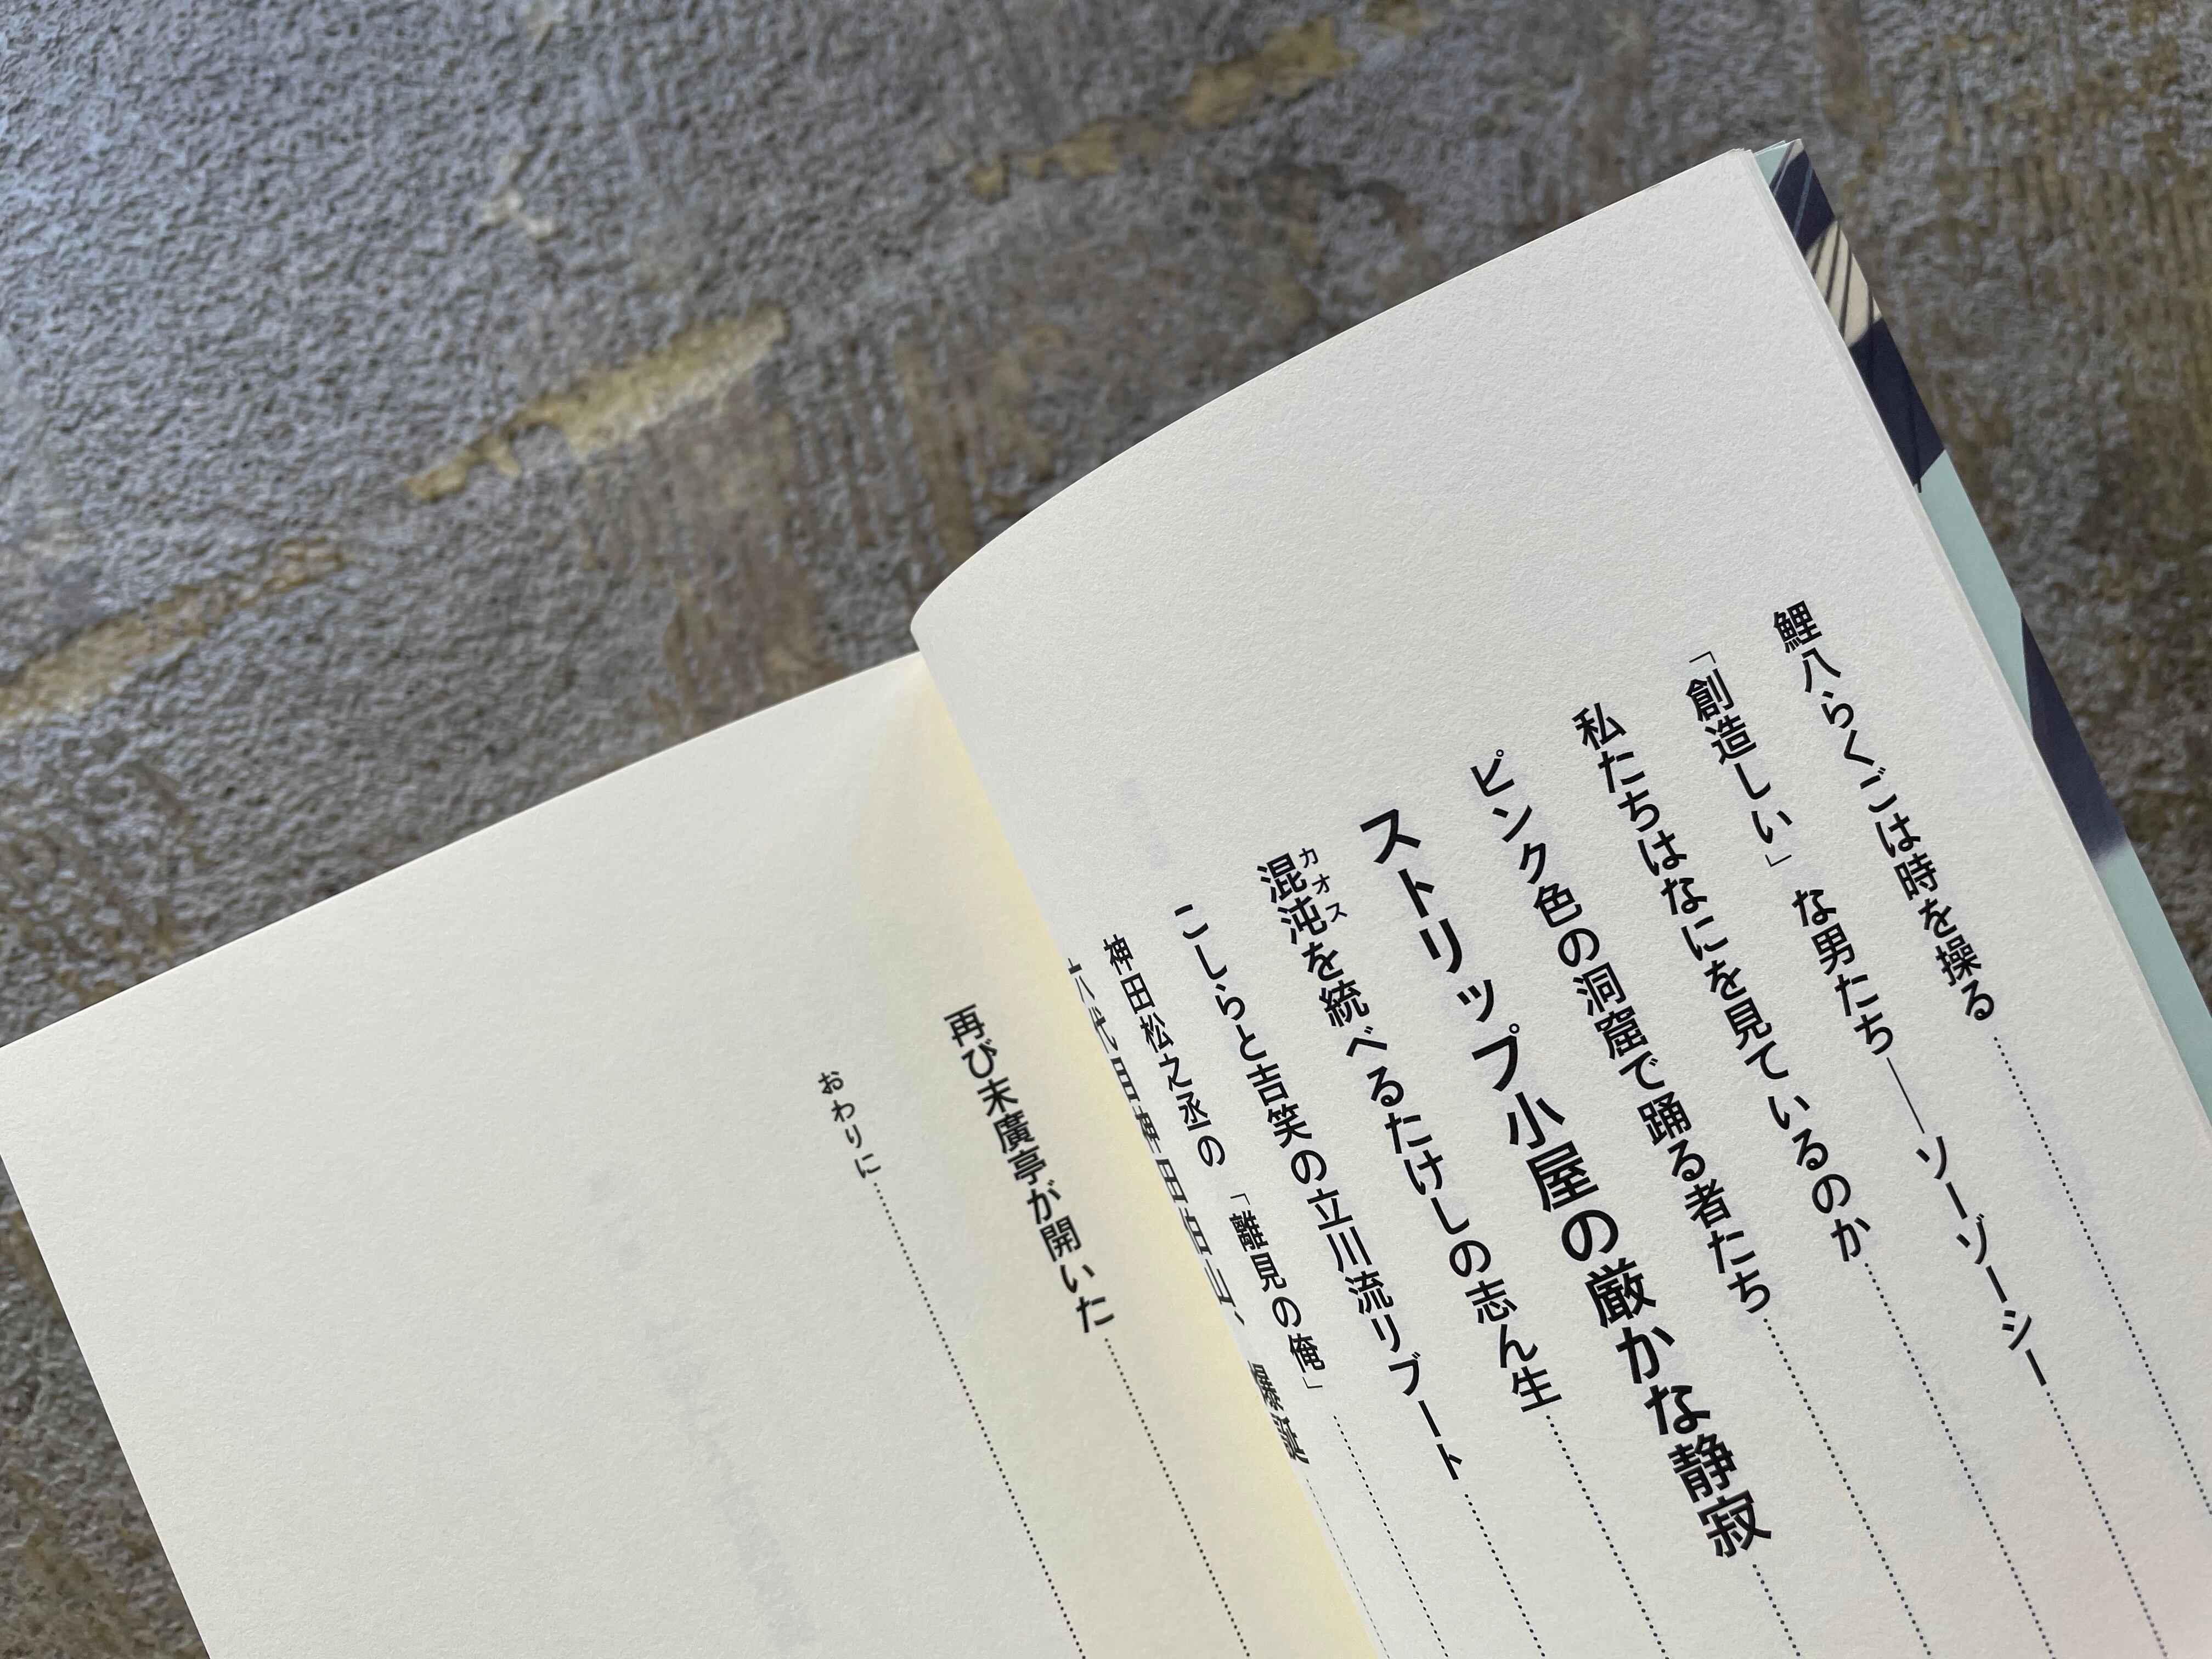 鯉八らくごは時を操る
「創造しい」な男たち――ソーゾーシー
私たちはなにを見ているのか
ピンク色の洞窟で踊る者たち
ストリップ小屋の厳かな静寂
カオス
混沌を統べるたけしの志ん生
こしらと吉笑の立川流リブート
神田松之丞の「離見の俺」
六代目神田伯山
再び末廣亭が開いた
おわりに